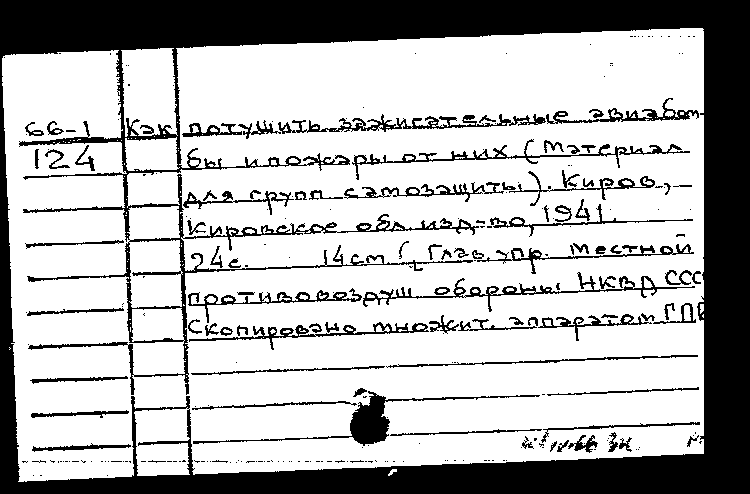 66-1 Как потушить зажигательные авиабом-
124 бы и пожары от них (Материал
для групп самозащиты). Киров,
Кировское обл. изд-во, 1941.
24с. 14см (Глав. упр. местной
противовоздуш обороны НКВД СССР
Скопировано множит. аппаратом ГПБ